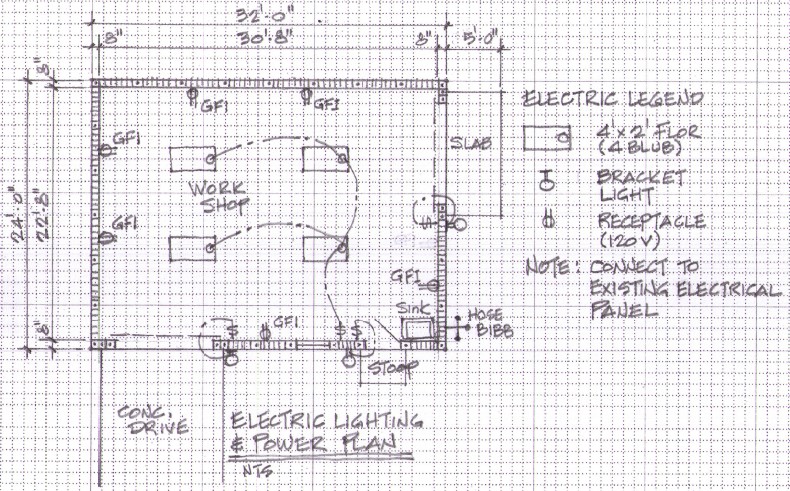 32'-0"
8"
30'-8"
8"
5'-0"
8"
24'-0"
22'-8"
8"
GFI
GFI
GFI
GFI
WORK
SHOP
SLAB
GFI
Sink
HOSE
BIBB
$
GFI
$ $
STOOP
CONC.
DRIVE
ELECTRIC LIGHTING
& POWER PLAN
NTS
ELECTRIC LEGEND
4'x2' FLOR
(4 BLUB)
BRACKET
LIGHT
RECEPTACLE
(120V)
NOTE: CONNECT TO
EXISTING ELECTRICAL
PANEL